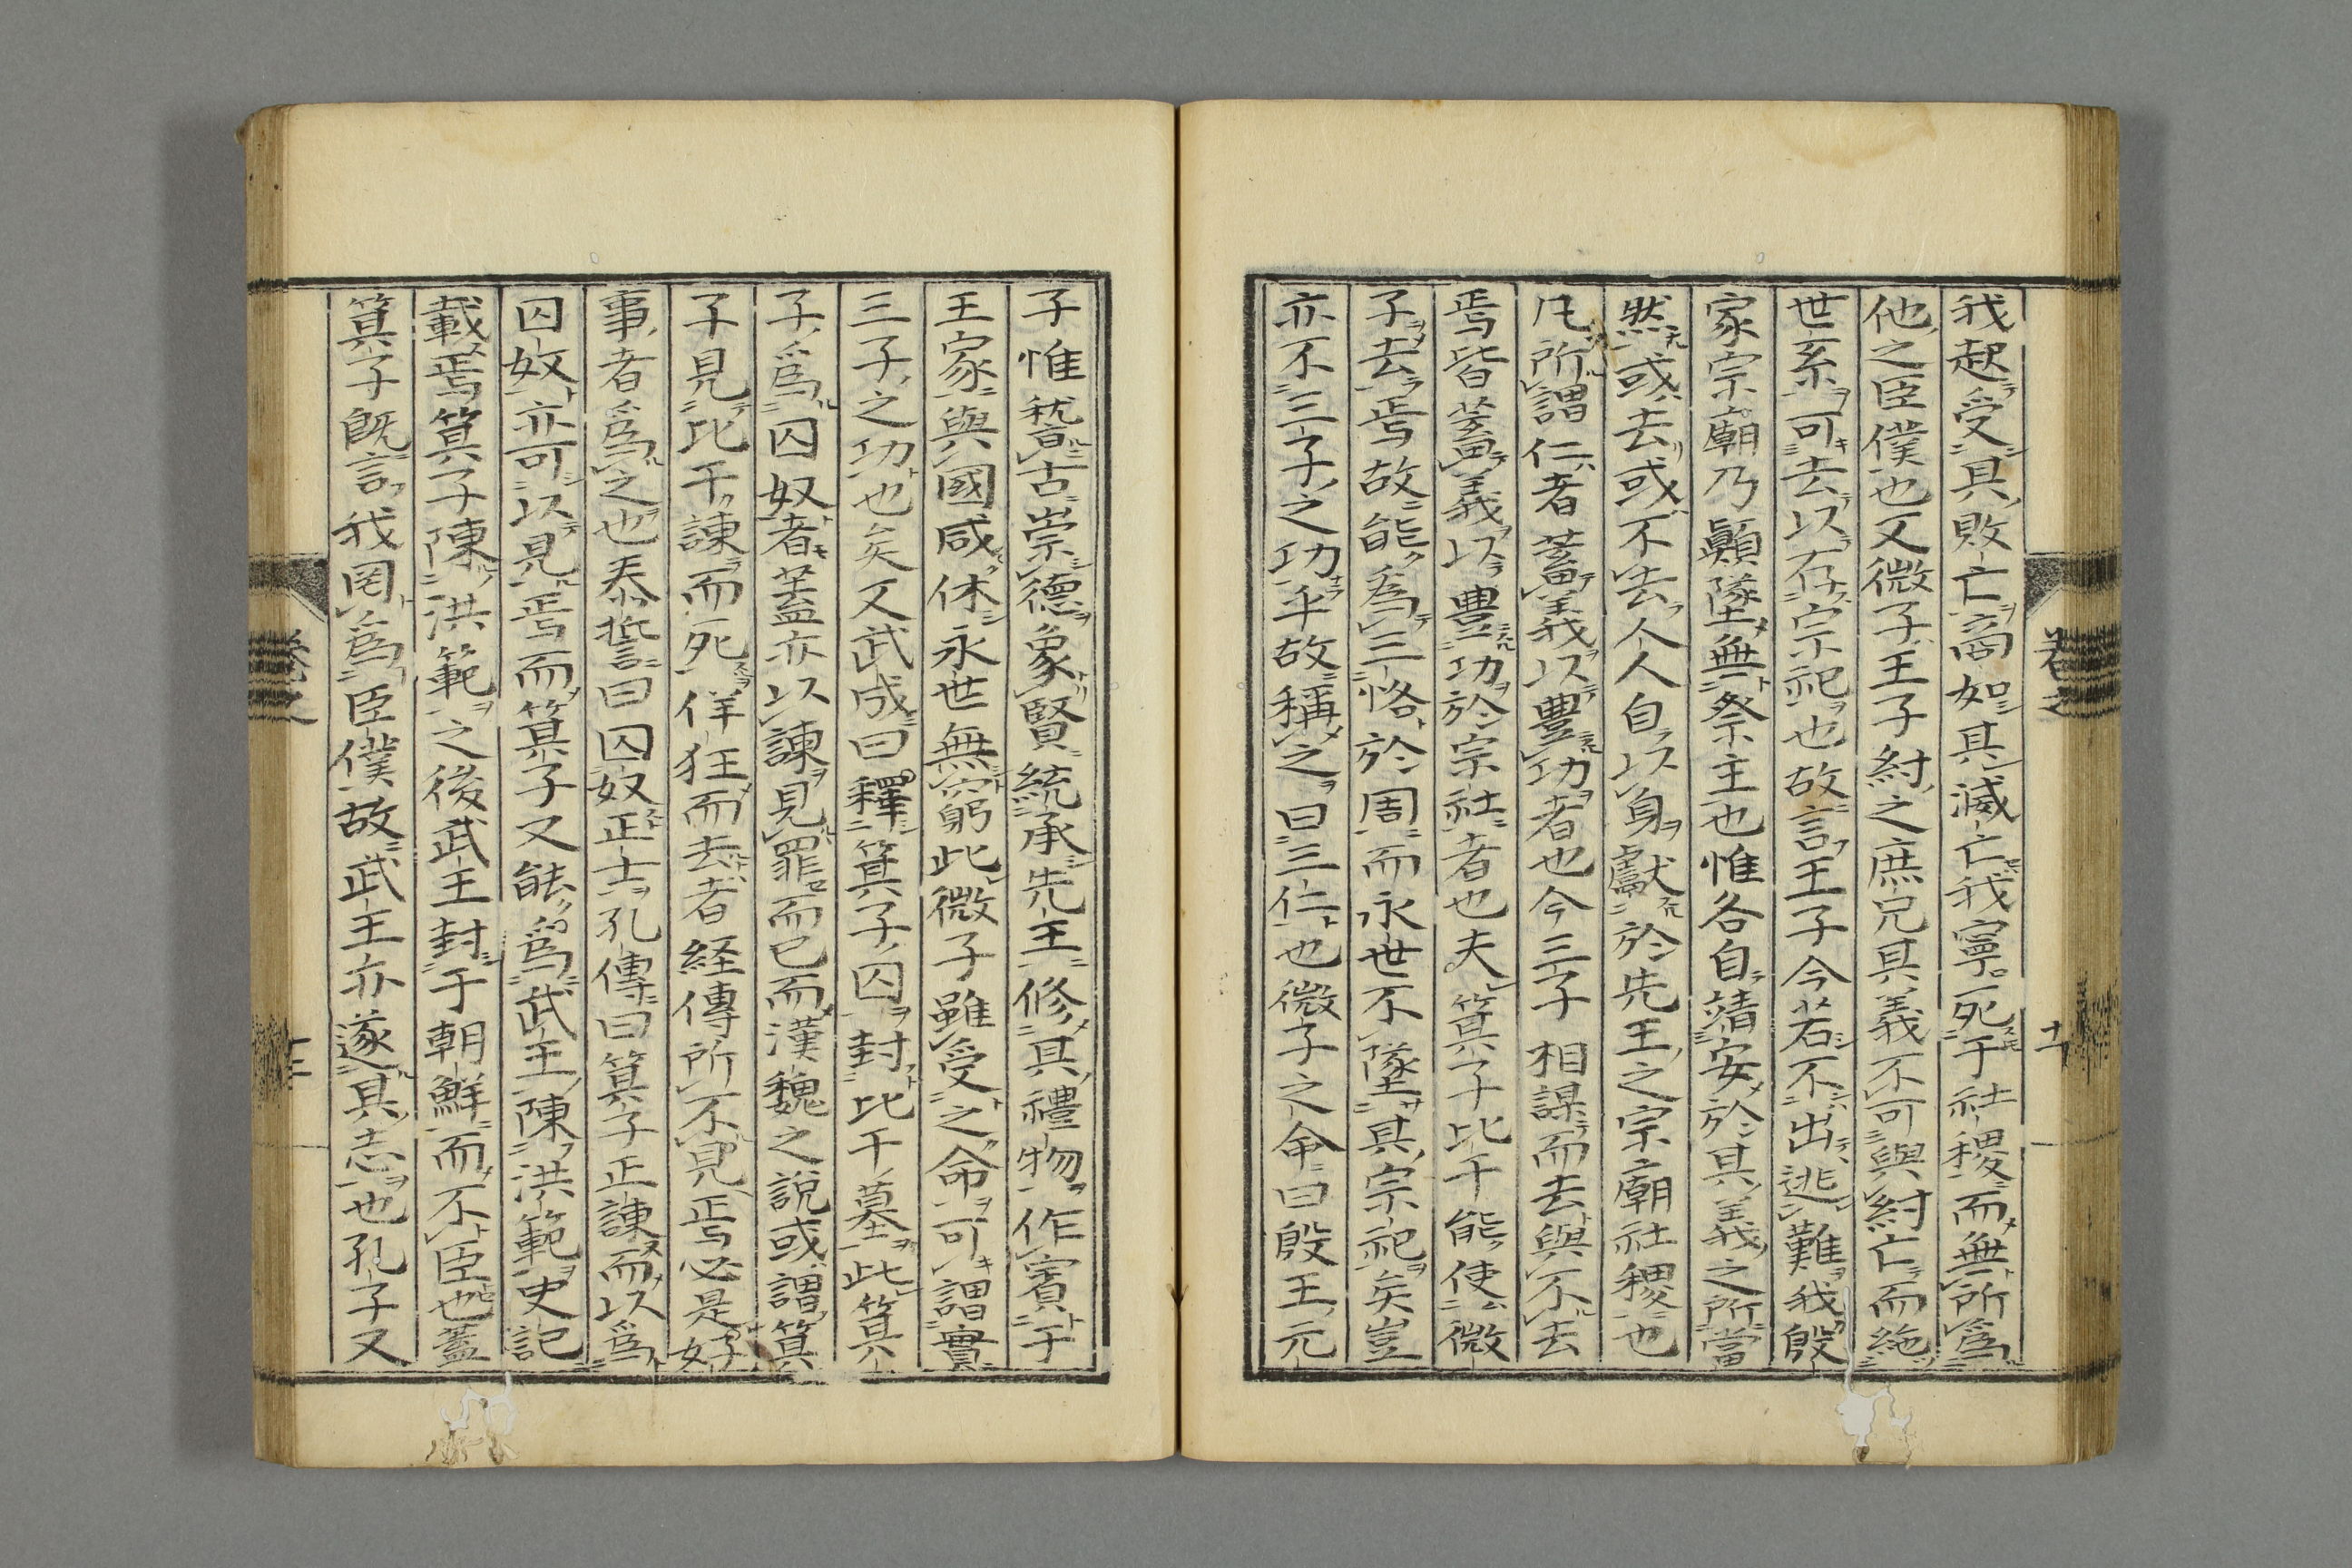 我起受其敗亡商如其滅亡我寧死于社稷而無所爲
他之臣僕也又微子王子紂之庶兄其義不可與紂亡而絶
世系可去以存宗祀也故言王子今若不出逃難我殷
家宗廟乃顚墜無祭主也惟各自靖安於其義之所當
然或去或不去人人自以身獻於先王之宗廟社稷也
凡所謂仁者蓄義以豊功者也今三子相謀而去與不去
焉皆蓄義以豊功於宗社者也夫箕子比干能使微
子去焉故能爲三恪於周而永世不墜其宗祀矣豈
亦不三子之功乎故稱之曰三仁也微子之命曰殷王元
子惟稽古崇德象賢統承先王修其禮物作賓于
王家與國咸休永世無窮此微子雖受之命可謂實
三子之功也矣又武成曰釋箕子囚封比干墓此箕
子爲囚奴者葢亦以諫見罪而已而漢魏之說或謂箕
子見比干諫而死佯狂而去者経傳所不見焉必是好
事者爲之也泰誓曰囚奴正士孔傳曰箕子正諫而以爲
囚奴亦可以見焉而箕子又能爲武王陳洪範史記
載焉箕子陳洪範之後武王封于朝鮮而不臣也蓋
箕子既言我罔爲臣僕故武王亦遂其志也孔子又